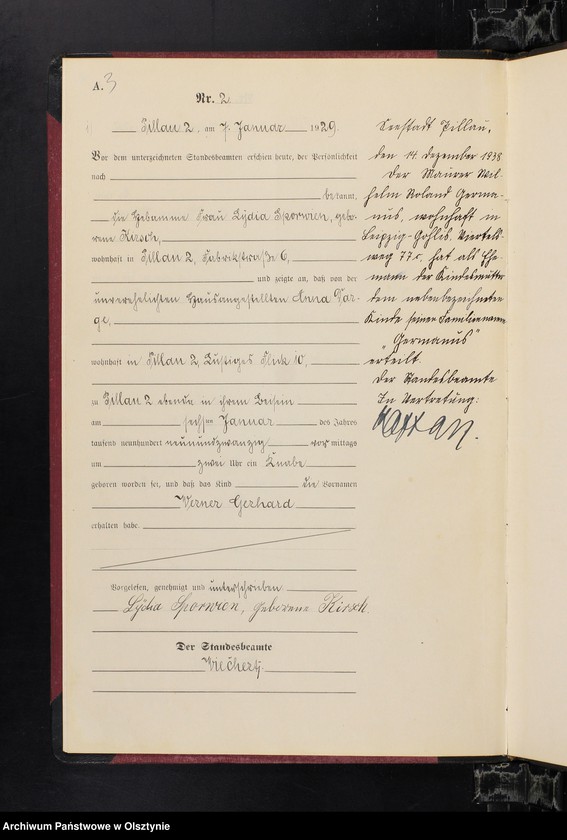 A. 3
Nr. 2
Pillau 2, am 7. Januar 1929.
Vor dem unterzeichneten Standesbeamten erschien heute, der Persönlichkeit
nach
bekannt,
die Hebamme Frau Lydia Sporwien, gebo-
rene Kirsch,
wohnhaft in Pillau 2, Fabrikstraße 6,
und zeigte an, daß von der
unverehelichten Hausangestellten Anna Var-
ge,
wohnhaft in Pillau 2, Lustiges Flick 10,
zu Pillau 2 ebenda in ihrem Beisein
am sechsten Januar des Jahres
tausend neunhundert neunundzwanzig vormittags
um zwei Uhr ein Knabe
geboren worden sei, und daß das Kind die Vornamen
Werner Gerhard
erhalten habe.
Vorgelesen, genehmigt und unterschrieben
Lydia Sporwien, geborene Kirsch.
Der Standesbeamte
Seestadt Pillau,
den 14. Dezember 1938
Der Maurer Wil-
helm Roland Germa-
nus, wohnhaft in
Leipzig-Gohlis, Viertels-
weg 77c, hat als Ehe-
mann der Kindesmutter
dem nebenbezeichneten
Kinde seinen Familiennamen
"Germanus"
erteilt.
Der Standesbeamte
In Vertretung:
Archiwum Państwowe w Olsztynie